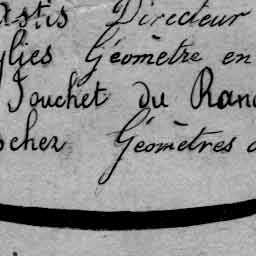 astis Directeur
ylies Géomètre en
Touchet du Ran
schez Géomètres